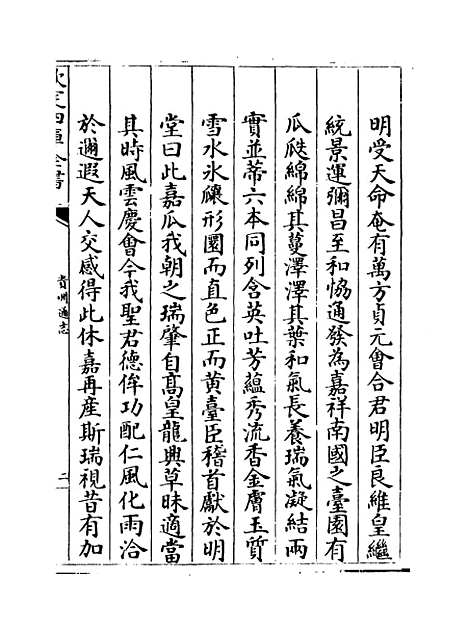 明受天命奄有萬方貞元會合君明臣良維皇繼
統景運彌昌至和恊通發為嘉祥南國之臺園有
瓜瓞綿綿其蔓澤澤其葉和氣長養瑞氣凝結兩
實並蒂六本同列含英吐芳蘊秀流香金膚玉質
雪水氷穰形圜而直色正而黄臺臣稽首獻於明
堂曰此嘉瓜我朝之瑞肇自髙皇龍興草昧適當
其時風雲慶會今我聖君德侔功配仁風化雨洽
於邇遐天人交感得此休嘉再産斯瑞視昔有加
欽定四庫全書
貴州通志
二